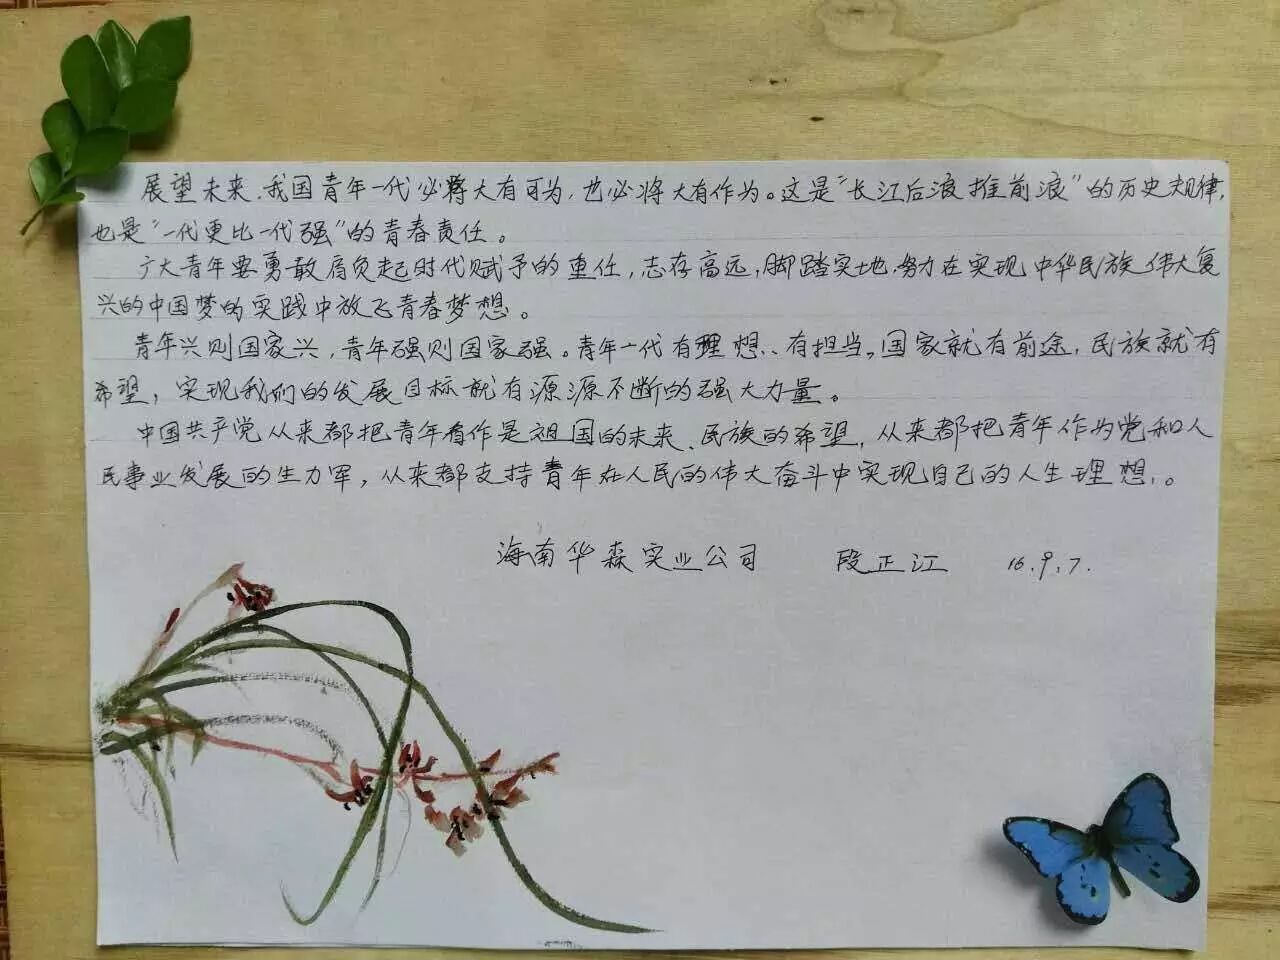 展望未来、我国青年一代必将大有可为，也必将大有作为。这是“长江后浪推前浪”的历史规律，
也是“一代更比一代强”的青春责任。
广大青年要勇敢肩负起时代赋予的重任，志存高远，脚踏实地，努力在实现中华民族伟大复
兴的中国梦的实践中放飞青春梦想。
青年兴则国家兴，青年强则国家强。青年一代有理想、有担当。国家就有前途，民族就有
希望，实现我们的发展目标就有源源不断的强大力量。
中国共产党从来都把青年看作是祖国的未来、民族的希望，从来都把青年作为党和人
民事业发展的生力军，从来都支持青年在人民的伟大奋斗中实现自己的人生理想。
海南华森实业公司 段正江 16.9.7.